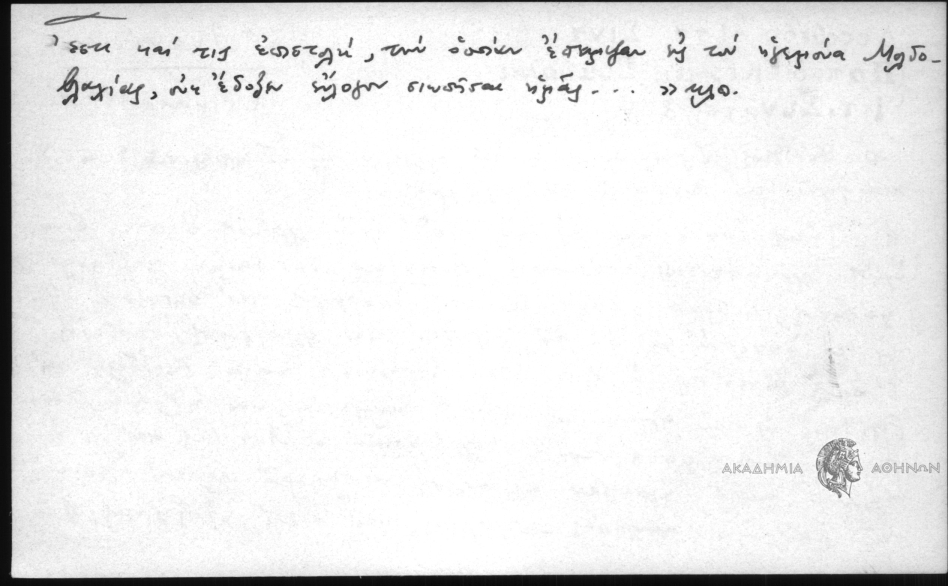 ἔστι καὶ τις ἐπιστολή, τὴν ὁποίαν ἔστειλαν εἰς τὸν ἡγεμόνα Μολδο-
βλαχίας, οὐκ ἔδοξεν εὔλογον σιωπῆσαι ἡμᾶς... » κλπ.
ΑΚΑΔΗΜΙΑ ΑΘΗΝΩΝ